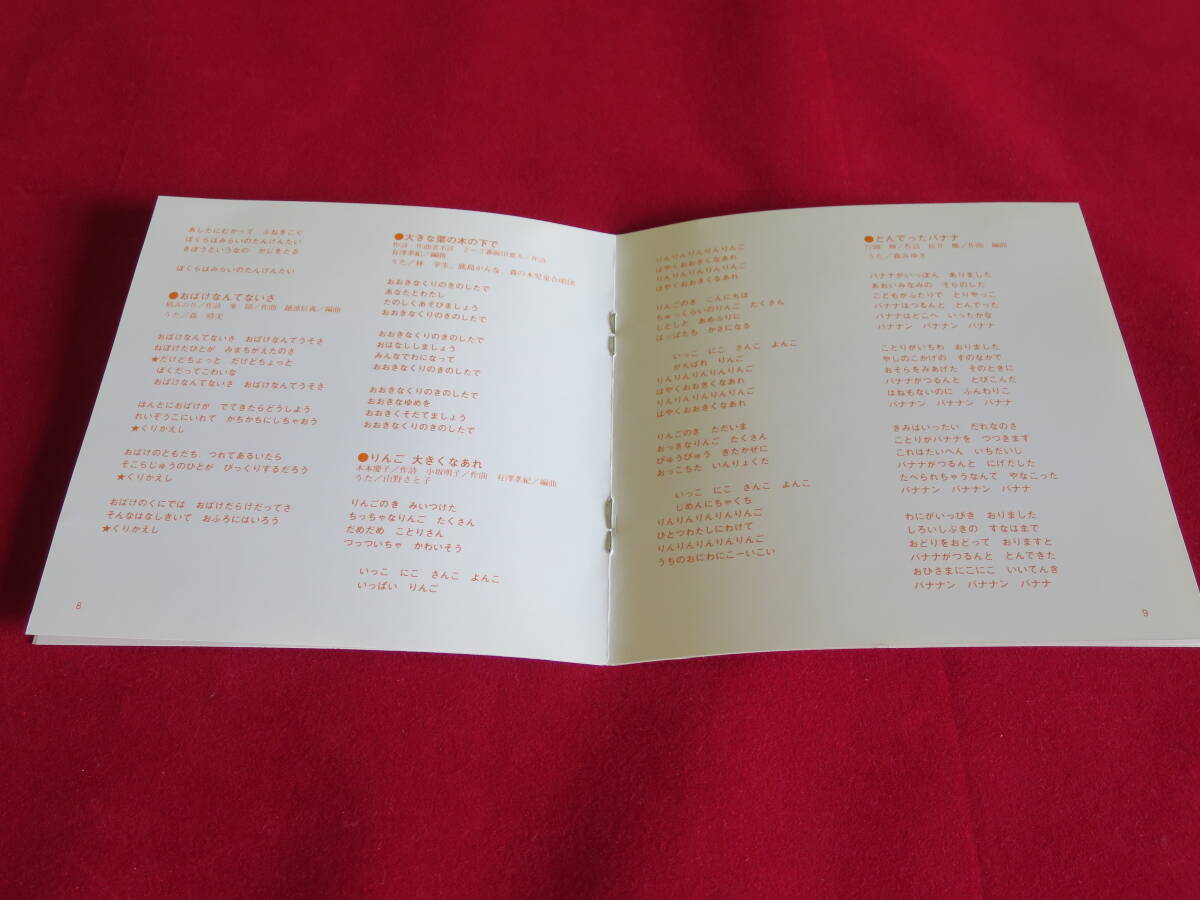 あしたにむかって ふねをこぐ
ぼくらはみらいのたんけんたい
きぼうというなの かじをとる
ぼくらはみらいのたんけんたい
●おばけなんてないさ
槇みのり/作詩 峯 陽/作曲 越部信義/編曲
うた/森 晴美
おばけなんてないさ おばけなんてうそさ
ねぼけたひとが みまちがえたのさ
★だけどちょっと だけどちょっと
ぼくだってこわいな
おばけなんてないさ おばけなんてうそさ
ほんとにおばけが でてきたらどうしよう
れいぞうこにいれて かちかちにしちゃおう
★くりかえし
おばけのともだち つれてあるいたら
そこらじゅうのひとが びっくりするだろう
★くりかえし
おばけのくにでは おばけだらけだってさ
そんなはなしきいて おふろにはいろう
★くりかえし
8
●大きな栗の木の下で
作詩・作曲者不詳
有澤孝紀/編曲
うた/林 幸生、鹿島かんな、森の木児童合唱団
おおきなくりのきのしたで
あなたとわたし
たのしくあそびましょう
おおきなくりのきのしたで
おおきなくりのきのしたで
おはなししましょう
みんなでわになって
おおきなくりのきのしたで
おおきなくりのきのしたで
おおきなゆめを
おおきくそだてましょう
おおきなくりのきのしたで
●りんご 大きくなあれ
木本慶子/作詩 小坂明子/作曲 有澤孝紀/編曲
うた/山野さと子
りんごのき みいつけた
ちっちゃなりんご たくさん
だめだめ ことりさん
つっついちゃ かわいそう
いっこ にこ さんこ よんこ
いっぱい りんご
りんりんりんりんりんご
はやくおおきくなあれ
りんりんりんりんりんご
はやくおおきくなあれ
りんごのき こんにちは
ちゅっくらいのりんご たくさん
しとしと あめふりに
はっぱたち かさになる
いっこ にこ さんこ よんこ
がんばれ りんご
りんりんりんりんりんご
はやくおおきくなあれ
りんりんりんりんりんご
はやくおおきくなあれ
りんごのき ただいま
おっきなりんご たくさん
ぴゅうぴゅう きたかぜに
おっこちた いんりょくだ
いっこ にこ さんこ よんこ
じめんにちゃくち
りんりんりんりんりんご
ひとつわたしにわけて
りんりんりんりんりんご
うちのおにわにこーいこい
●とんでったバナナ
片岡 輝/作詩 桜井 順/作曲 編曲
うた/森みゆき
バナナがいっぽん ありました
あおいみなみの そらのした
こどもがふたりで とりやっこ
バナナはつるんと とんでった
バナナはどこへ いったかな
バナナン バナナン バナナ
ことりがいちわ おりました
やしのこかげの すのなかで
おそらをみあげた そのときに
バナナがつるんと とびこんだ
はねもないのに ふんわりこ
バナナン バナナン バナナ
きみはいったい だれなのさ
ことりがバナナを つつきます
これはたいへん いちだいじ
バナナがつるんと にげだした
たべられちゃうなんて やなこった
バナナン バナナン バナナ
わにがいっぴき おりました
しろいしぶきの すなはまで
おどりをおどって おりますと
バナナがつるんと とんできた
おひさまにこにこ いいてんき
バナナン バナナン バナナ
9